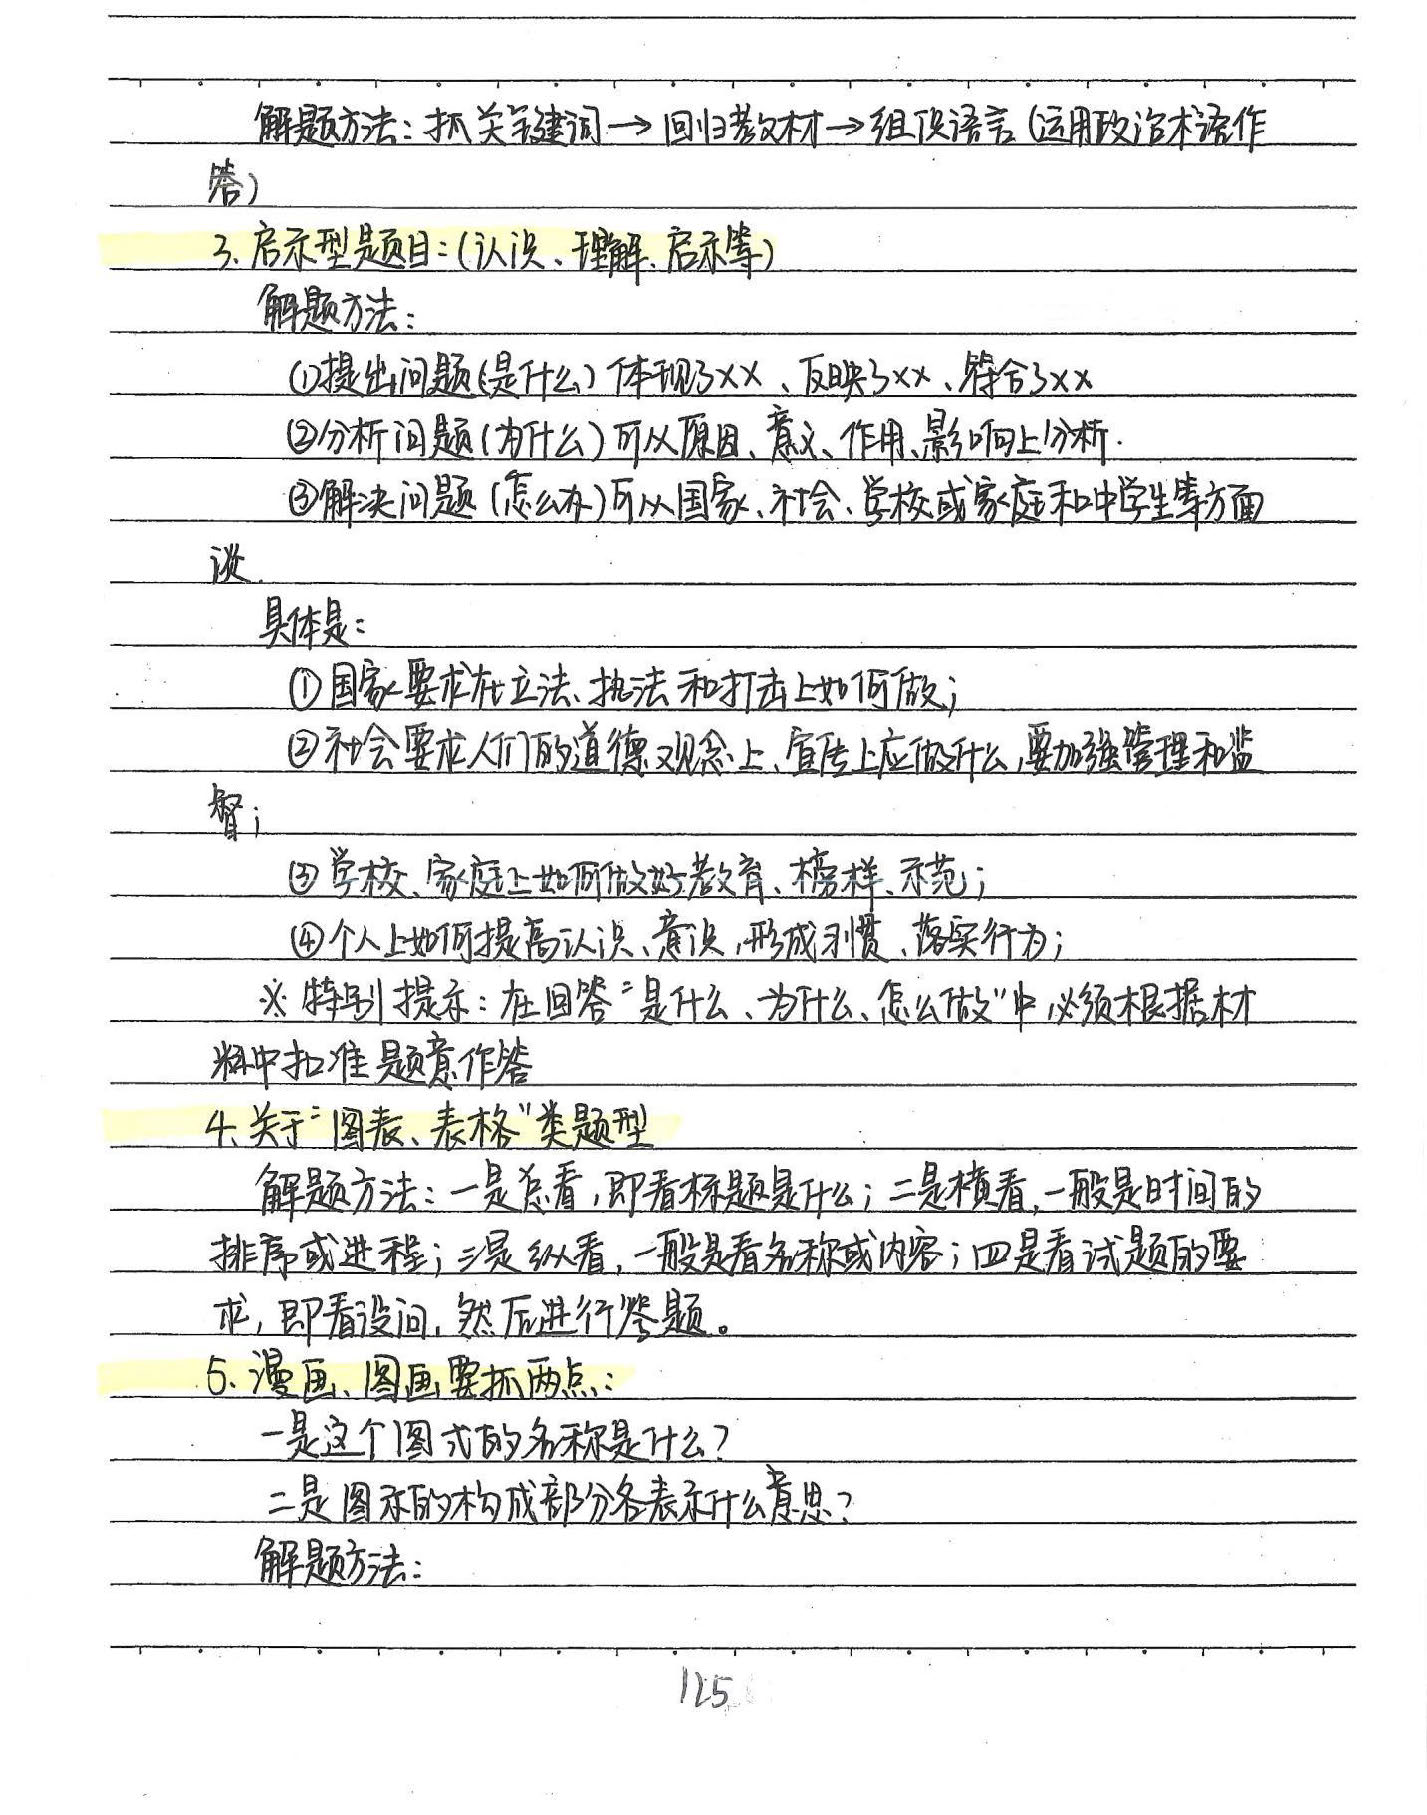 解题方法：抓关键词→回归教材→组织语言(运用政治术语作
答)
3、启示型题目：(认识、理解、启示等)
解题方法：
①提出问题(是什么) 体现了××、反映了××、符合了××
②分析问题(为什么)可从原因、意义、作用、影响上分析.
③解决问题(怎么办)可从国家、社会、学校或家庭和中学生等方面
谈.
具体是：
①国家要求在立法、执法和打击上如何做；
②社会要求人们的道德观念上、宣传上应做什么,要加强管理和监
督；
③学校、家庭上如何做好教育、榜样、示范；
④个人上如何提高认识、意识,形成习惯、落实行为；
※特别提示：在回答“是什么、为什么、怎么做”中,必须根据材
料中扣准题意作答
4、关于“图表、表格”类题型
解题方法：一是总看,即看标题是什么；二是横看,一般是时间的
排序或进程；三是纵看,一般是看名称或内容；四是看试题的要
求,即看设问,然后进行答题。
5、漫画、图画要抓两点：
一是这个图式的名称是什么？
二是图示的构成部分各表示什么意思？
解题方法：
125